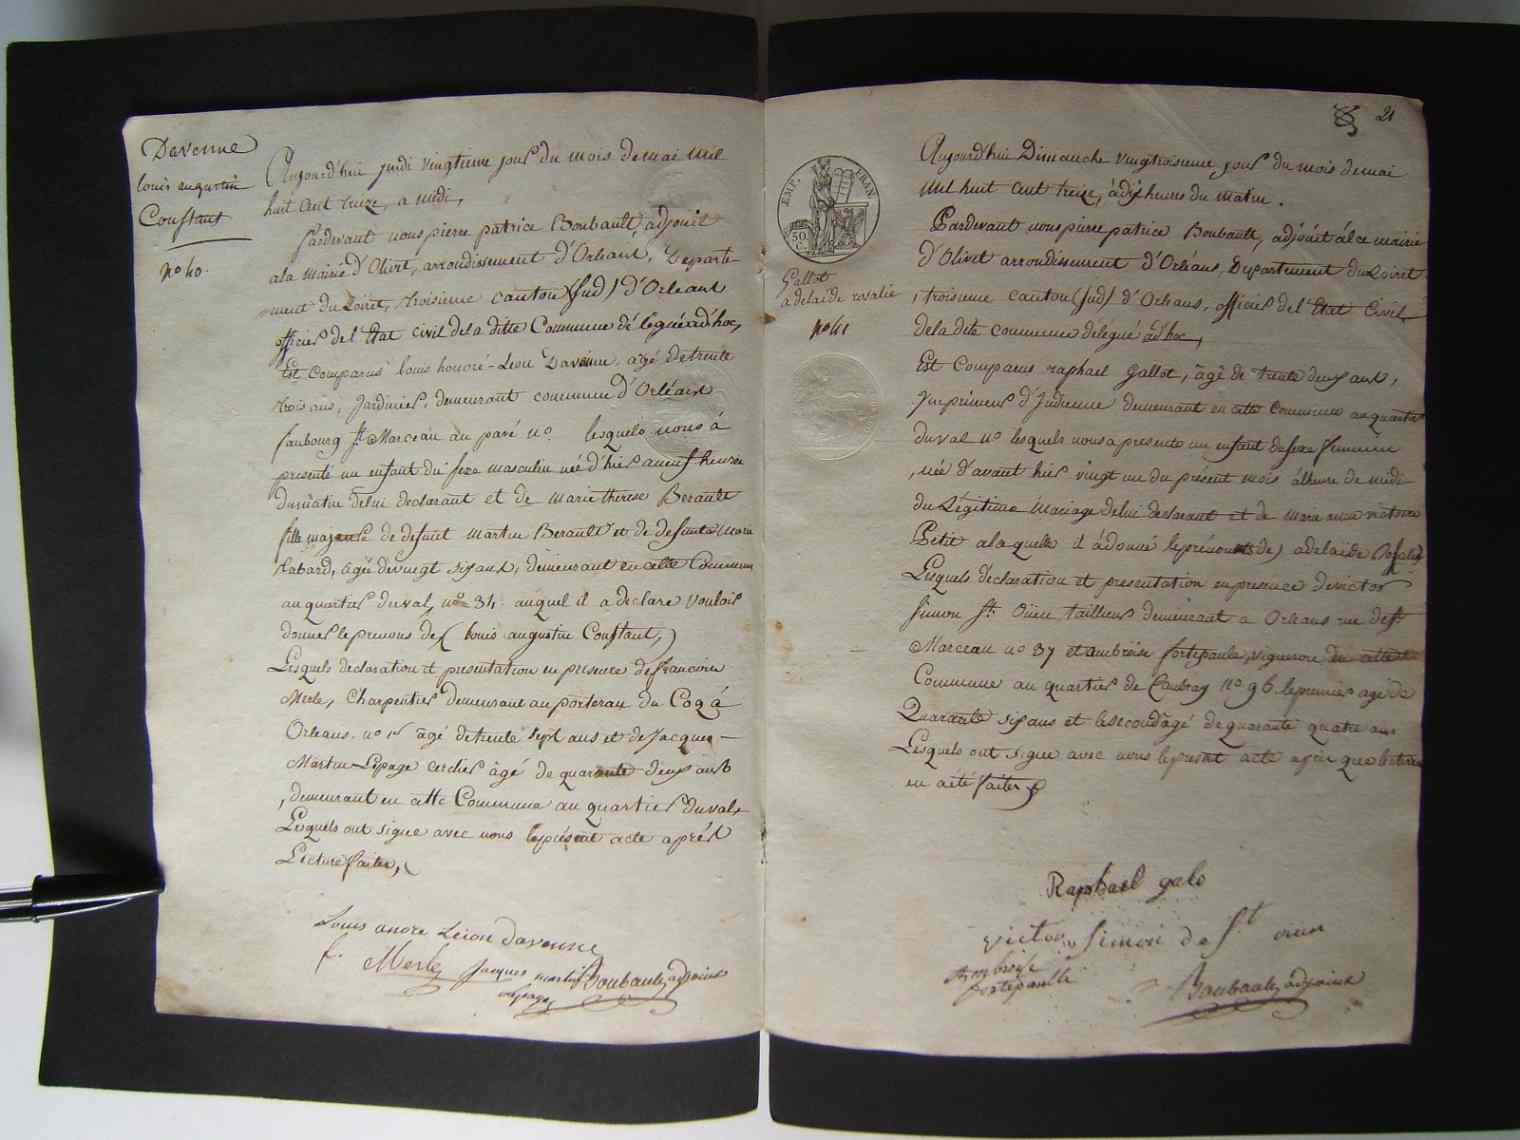 Davenne
louis augustin
Constant
no 40.
Aujourd'hui jeudi vingtieme jour du mois demai mil
huit cent treize, a midi,
Pardevant nous pierre patrice Boubault, adjoint
ala mairie d'Olivet, arrondissement d'Orleans, Departe-
ment du Loiret, troisieme canton (sud) d'Orleans
officier del'Etat civil dela ditte Commune délégué ad'hoc,
Est comparus louis honoré-Leon Davenne, agé detrente
trois ans, Jardinier, demeurant commune d'Orléans
faubourg St. Marceau au pavé no. lesquels nous à
presenté un enfant du sexe masculin née d'hier aneuf heures
dumatin delui declarant et de marie therese Berault
fille majeure de defunt martin Berault et de defunte marie
tabard, agée devingt six ans, demeurant en cette Commune
au quartier duval, no. 34. auquel il a declare vouloir
donner le prenons de ( louis augustin Constant, )
Lesquels declaration et presentation en presence de francois
Merle, Charpentier demeurant au portereau du Coq à
Orleans. no 15 âgé detrente sept ans et de Jacques-
Martin Lepage cerclier âgé de quarante deux ans
, demeurant en cette Commune au quartier duval,
Lesquels ont signe avec nous le présent acte aprés
Lecture faite,
Louis andre Leion davenne
f. Merle Jacques martin Boubault, adjoint
lepage
21
EMP. FRAN
50
C.
Gallot
adelaide rosalie
no 41
Aujourd'hui Dimanche vingtroisieme jour du mois demai
Mil huit cent treize, à dix heures du matin.
Pardevant nous pierre patrice Boubault, adjoint à la mairie
d'Olivet arrondissement d'Orléans, Departement du Loiret
, troisieme canton (sud) d'Orleans, officier del'Etat Civil
dela dite commune délégué ad'hoc,
Est Comparus raphael Gallot, âgé de trente deux ans,
Imprimeur d'Indienne demeurant en cette Commune au quartier
duval no lesquels nous a presenté un enfant de sexe feminin
, née d'avant hier vingt un du présent mois à lheure de midi
du Légitime Mariage delui declarant et de marie anne victoire
Petit a laquelle il à donné le prénoms de) adelaide Rosalie
Lesquels déclaration et presentation en presence de victor
Simon St. Ouen, tailleur demeurant a Orleans rue de St.
Marceau no 37 et ambroise fortepaule, vigneron en cette
Commune au quartier de Caubray no 96. le premier agé de
Quarante six ans et le second âgé de quarante quatre ans
Lesquels ont signe avec nous le présent acte apres que lecture
en acté faite
Raphael galo
victor Simon de St ouen
Ambroise
fortepaulle
Boubault, adjoint